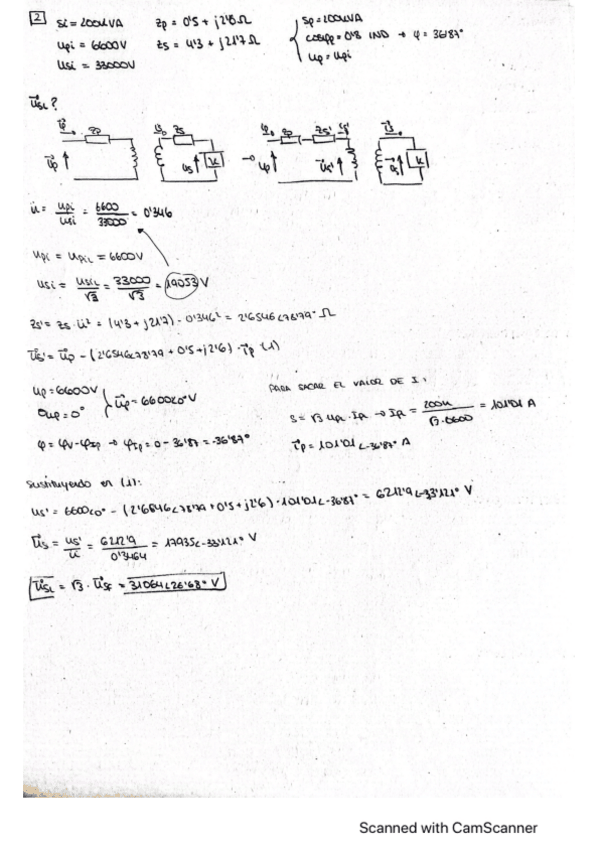 2 Si = 200kVA Zp = 0'5 + j2'6 Ω Sp = 200kVA
Upi = 6600V Zs = 4'3 + j21'7 Ω cosφp = 0'8 IND → φ = 36'87°
Usi = 33000V Up = Upi
UsL?
Ip Zp Is Zs Ip Zp Zs' Is' Is
Up Us K → Up Us' Us K
u = Upi/Usi = 6600/33000 = 0'346
Upi = UpiL = 6600V
Usi = UsiL/√3 = 33000/√3 = 19053 V
Zs' = Zs · u² = (4'3 + j21'7) · 0'346² = 2'6546∠78'79° Ω
Us' = Up - (2'6546∠78'79 + 0'5 + j2'6) · Ip (1)
Up = 6600V Up = 6600∠0° V PARA SACAR EL VALOR DE I:
θup = 0° S = √3 UpL · IpL → IpL = 200k/√3·6600 = 101'01 A
φ = φV - φIp → φIp = 0 - 36'87 = -36'87° Ip = 101'01∠-36'87° A
Sustituyendo en (1):
Us' = 6600∠0° - (2'6546∠78'79 + 0'5 + j2'6) · 101'01∠-36'87° = 6212'9∠-3'3121° V
Us = Us'/u = 6212'9/0'3464 = 17935∠-3'3121° V
UsL = √3 · Usf = 31064∠26'68° V
Scanned with CamScanner